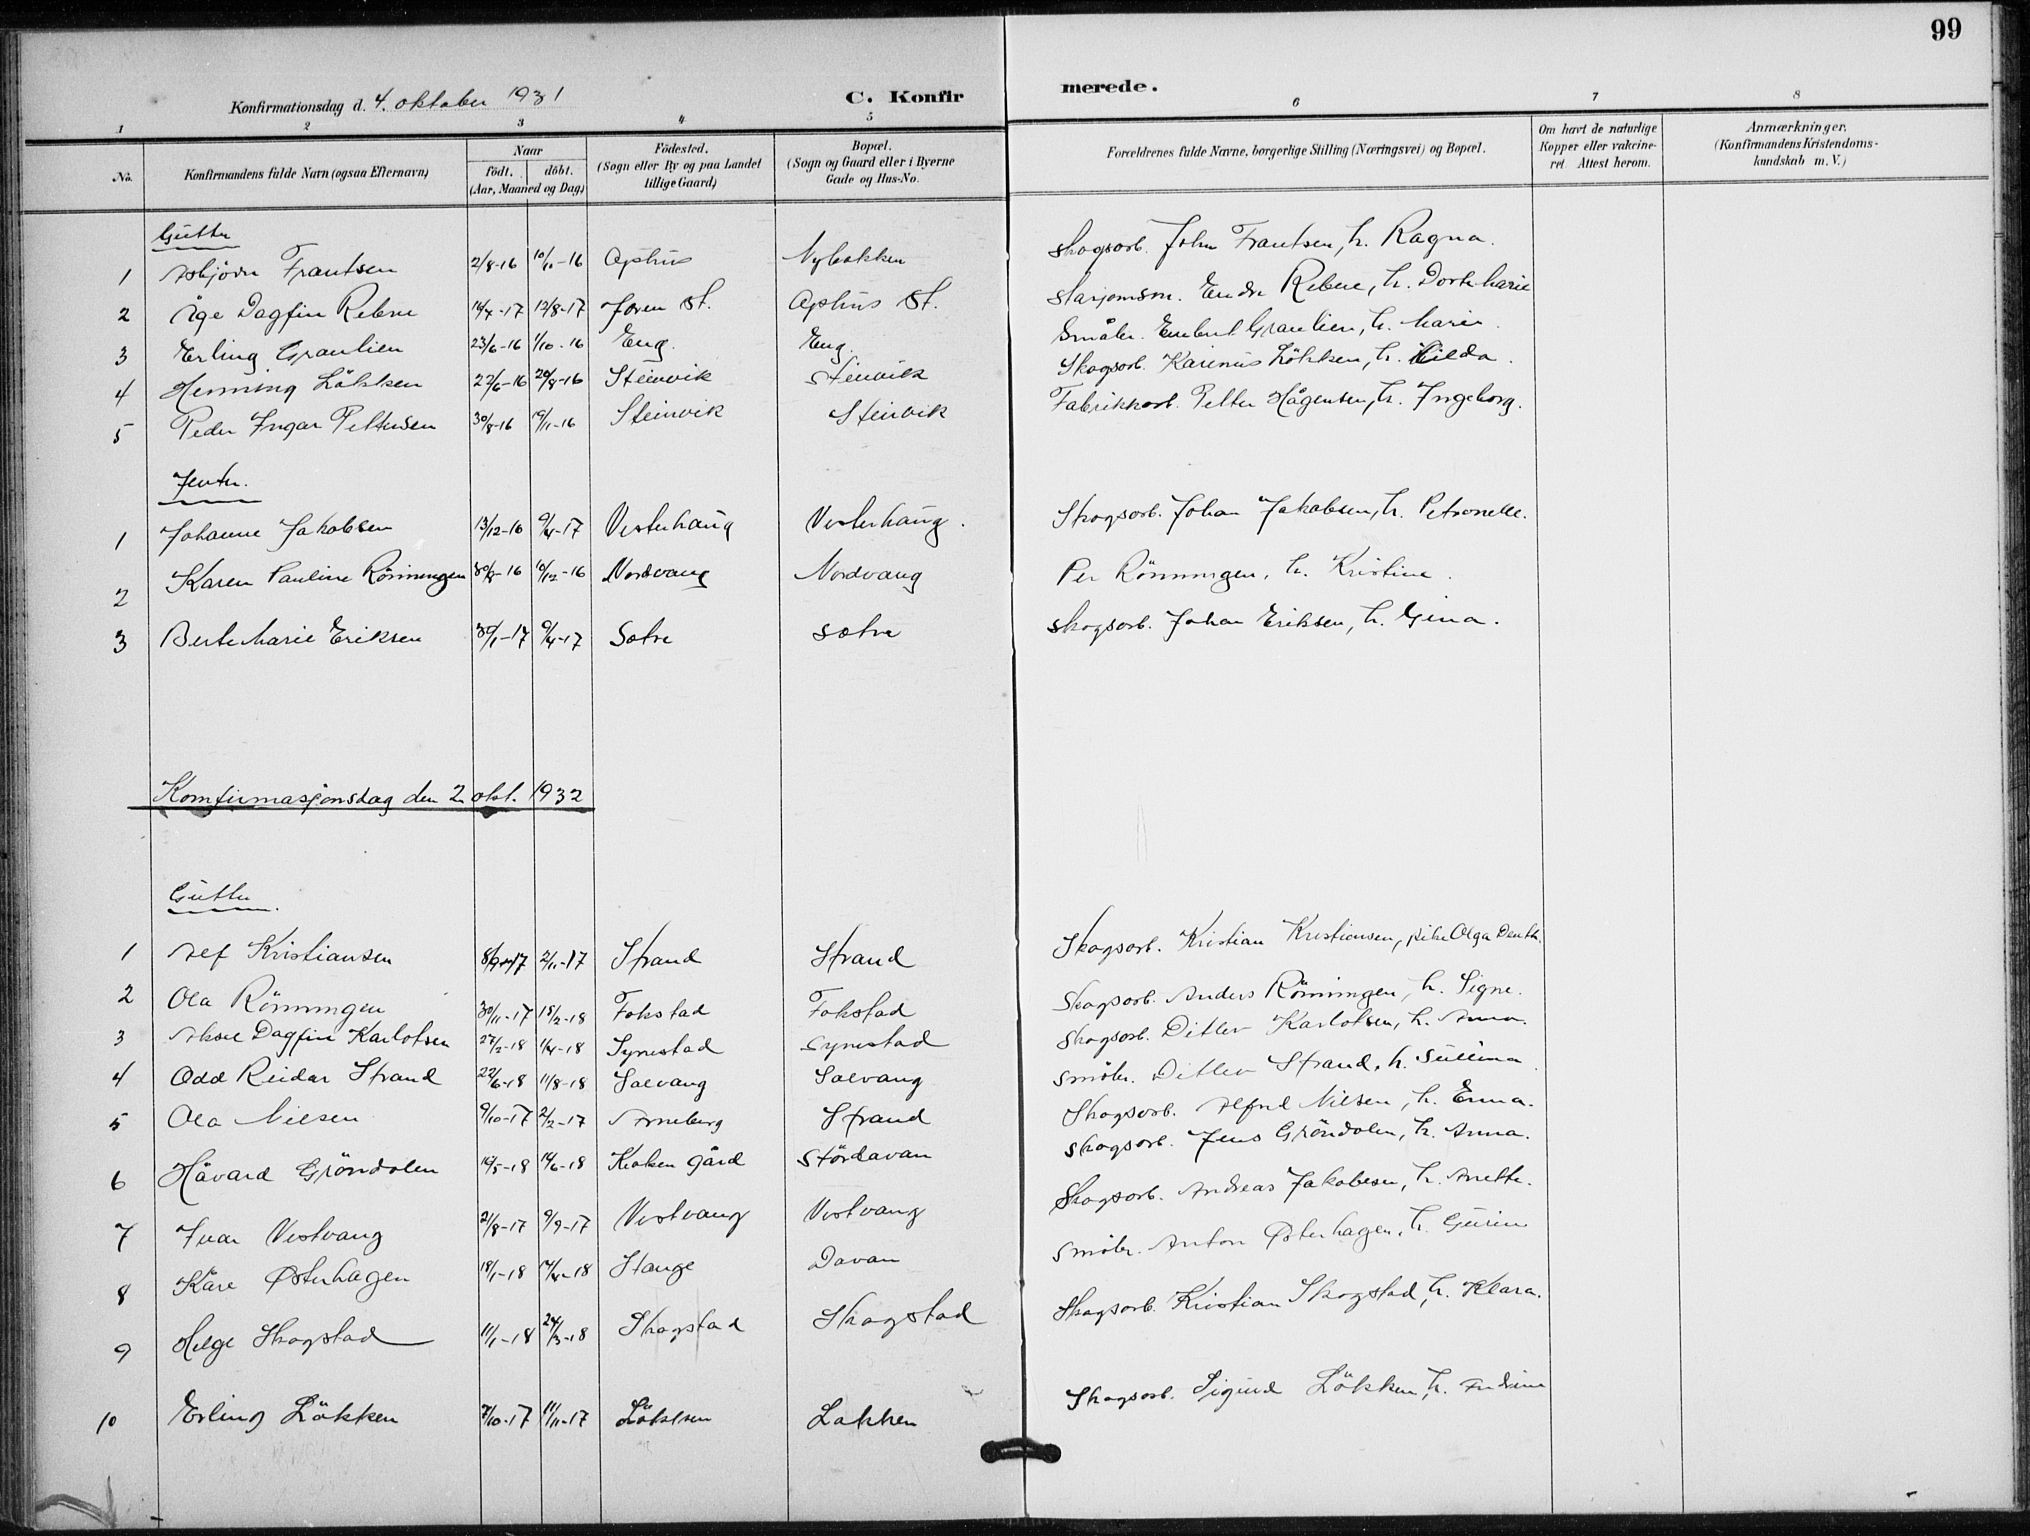 99
Konfirmationsdag d. 4. oktober 1931 C. Konfirmerede.
1 2 3 4 5 6 7 8
No. Konfirmandens fulde Navn (ogsaa Efternavn) Naar født. døbt. (Aar, Maaned og Dag) Fødested. (Sogn eller By og paa Landet tillige Gaard) Bopæl. (Sogn og Gaard eller i Byerne Gade og Hus-No. Forældrenes fulde Navne, borgerlige Stilling (Næringsvei) og Bopæl. Om havt de naturlige Kopper eller vakcineret Attest herom. Anmærkninger. (Konfirmandens Kristendomskundskab m. V.)
Gutter
1 Asbjörn Frantsen 2/8-16 10/11-16 Ophus Nybakken Skogsarb. John Frantsen, h. Ragna.
2 Åge Dagfin Rebne 14/4-17 12/8-17 St. Ophus St. stasjonsm. Endre Rebne, h. Dortemarie
3 Erling Graulien 23/6-16 1/10-16 Eng. Eng. Småbr. Graulien, h. Marie.
4 Henning Lökken 22/6-16 20/8-16 Steinvik Steinvik Skogsarb. Karenus Lökken, h. Hilda.
5 Peder Ingar Pettersen 30/8-16 19/11-16 Steinvik Steinvik Fabrikkarb. Petter Hågensen, h. Ingeborg.
Jenter.
1 Johanne Jakobsen 13/12-16 9/4-17 Vesterhaug Vesterhaug. Skogsarb. Johan Jakobsen, h. Petronelle.
2 Karen Pauline Rönningen 30/8-16 10/12-16 Nordvang Nordvang Per Rönningen, h. Kristine.
3 Berte Marie Eriksen 30/1-17 9/4-17 Sætre sætre skogsarb. Johan Eriksen, h. Gina.
Komfirmasjonsdag den 2 okt. 1932
Gutter.
1 Alf Kristiansen 8/9-17 2/11-17 Strand Strand Skogsarb. Kristian Kristiansen, pike Olga
2 Ola Rönningen 30/11-17 18/2-18 Fokstad Fokstad Skogsarb. Anders Rönningen, h. Signe.
3 Aksel Dagfin Karlotsen 27/2-18 1/4-18 Synestad synestad skogsarb. Ditlev Karlotsen, h. Anna.
4 Odd Reidar Strand 22/6-18 11/8-18 Solvang Solvang småbr. Ditlev Strand, h.
5 Ola Nilsen 9/10-17 2/12-17 Arneberg Strand Skogsarb. Alfred Nilsen, h. Emma.
6 Håvard Gröndalen 10/5-18 14/6-18 gård Stördavan skogsarb. Jens Gröndalen, h. Anna.
7 Ivar Vestvang 21/8-17 9/9-17 Vestvang Vestvang Skogsarb. Andreas Jakobsen, h. Anette.
8 Kåre Østerhagen 18/1-18 14/4-18 Stange Davan småbr. Anton Østerhagen, h. Gurine
9 Helge Skogstad 11/1-18 24/3-18 Skogstad Skogstad Skogsarb. Kristian Skogstad, h. Klara.
10 Erling Lökken 7/10-17 11/11-17 Lökken Løkken Skogsarb. Sigurd Lökken, h.